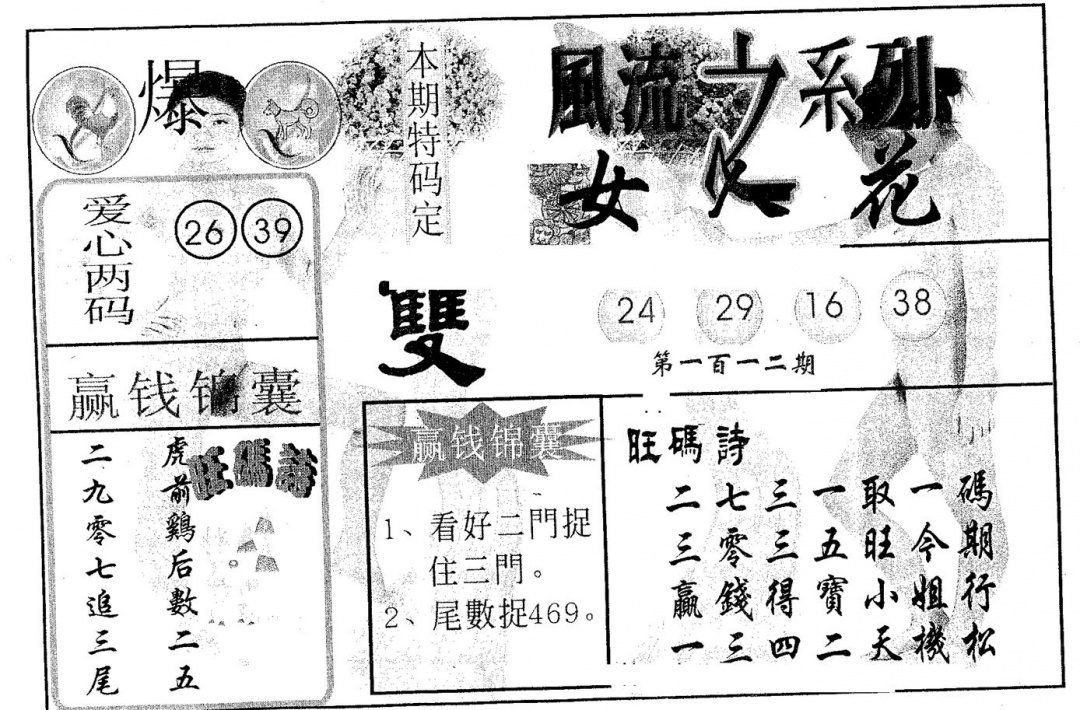 爆
本期特码定
雙
風流之系列
女人花
爱心两码
26 39
24 29 16 38
第一百一二期
赢钱锦囊
旺碼詩
虎前鷄后數二五
二九零七追三尾
赢钱锦囊
1、看好二門捉
住三門。
2、尾數捉469。
旺碼詩
碼期行松
一今姐機
取旺小天
一五寶二
三三得四
七零錢三
二三贏一